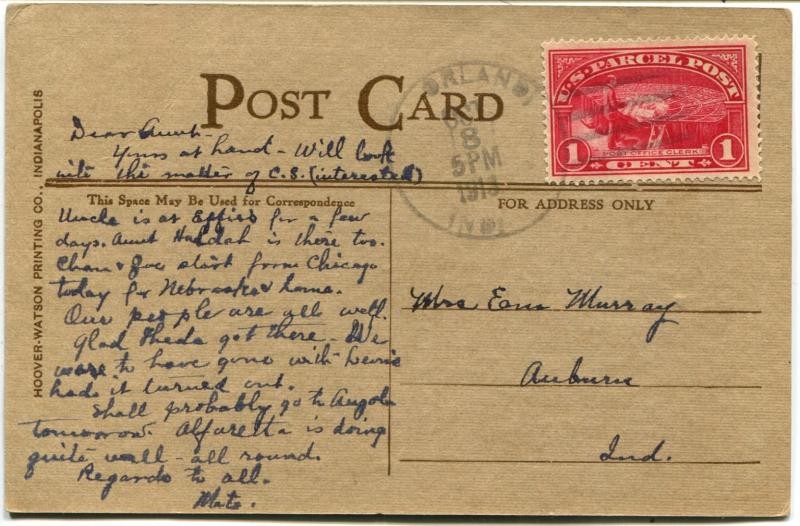 POST CARD
Dear Aunt-
Yours at hand - Will look
into the matter of C.S. (interested)
This Space May Be Used for Correspondence
Uncle is at for a few
days. Aunt Huldah is there too.
start from Chicago
today for Nebraska & home.
Our people are all well.
Glad got there - We
were to have gone with
had it turned out.
Shall probably go to Angola
tomorrow. Alfaretta is doing
quite well - all round.
Regards to all.
HOOVER-WATSON PRINTING CO., INDIANAPOLIS
ORLAND
8
5PM
1913
IND.
U.S. PARCEL POST
POST OFFICE CLERK
1 CENT 1
FOR ADDRESS ONLY
Mrs Murray
Auburn
Ind.